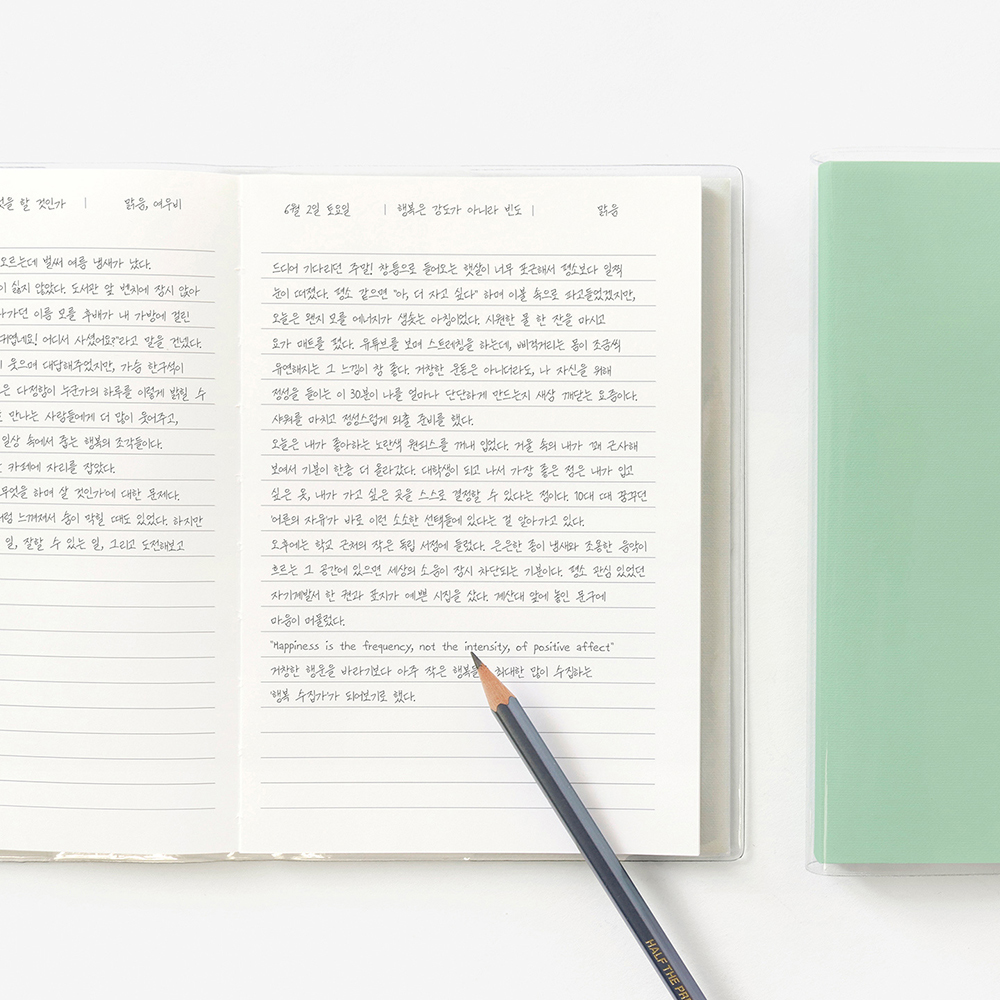 것을 할 것인가 | 맑음, 여우비
오르는데 벌써 여름 냄새가 났다.
싫지 않았다. 도서관 앞 벤치에 잠시 앉아
이름 모를 후배가 내 가방에 걸린
귀엽네요! 어디서 사셨어요?"라고 말을 건넸다.
웃으며 대답해주었지만, 가슴 한구석이
다정함이 누군가의 하루를 이렇게 밝힐 수
만나는 사람들에게 더 많이 웃어주고,
일상 속에서 줍는 행복의 조각들이다.
카페에 자리를 잡았다.
무엇을 하며 살 것인가'에 대한 문제다.
느껴져서 숨이 막힐 때도 있었다. 하지만
일, 잘할 수 있는 일, 그리고 도전해보고
6월 2일 토요일 | 행복은 강도가 아니라 빈도 | 맑음
드디어 기다리던 주말! 창틈으로 들어오는 햇살이 너무 포근해서 평소보다 일찍
눈이 떠졌다. 평소 같으면 "아, 더 자고 싶다" 하며 이불 속으로 파고들었겠지만,
오늘은 왠지 모를 에너지가 샘솟는 아침이었다. 시원한 물 한 잔을 마시고
요가 매트를 폈다. 유튜브를 보며 스트레칭을 하는데, 삐걱거리는 몸이 조금씩
유연해지는 그 느낌이 참 좋다. 거창한 운동은 아니더라도, 나 자신을 위해
정성을 들이는 이 30분이 나를 얼마나 단단하게 만드는지 새삼 깨닫는 요즘이다.
샤워를 마치고 정성스럽게 외출 준비를 했다.
오늘은 내가 좋아하는 노란색 원피스를 꺼내 입었다. 거울 속의 내가 꽤 근사해
보여서 기분이 한층 더 올라갔다. 대학생이 되고 나서 가장 좋은 점은 내가 입고
싶은 옷, 내가 가고 싶은 곳을 스스로 결정할 수 있다는 점이다. 10대 때 꿈꾸던
'어른의 자유'가 바로 이런 소소한 선택들에 있다는 걸 알아가고 있다.
오후에는 학교 근처의 작은 독립 서점에 들렀다. 은은한 종이 냄새와 조용한 음악이
흐르는 그 공간에 있으면 세상의 소음이 잠시 차단되는 기분이다. 평소 관심 있었던
자기계발서 한 권과 표지가 예쁜 시집을 샀다. 계산대 앞에 놓인 문구에
마음이 머물렀다.
"Happiness is the frequency, not the intensity, of positive affect"
거창한 행운을 바라기보다 아주 작은 행복을 최대한 많이 수집하는
'행복 수집가'가 되어보기로 했다.
HALF THE